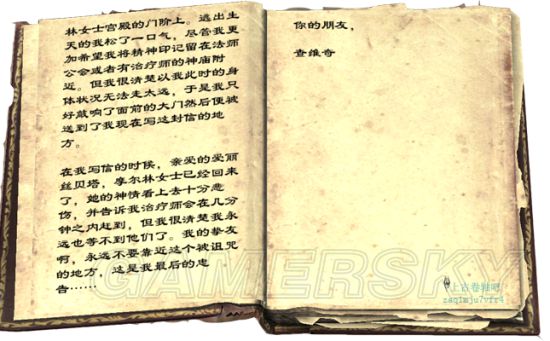 林女士宫殿的门阶上。逃出生
天的我松了一口气，尽管我更
加希望我将精神印记留在法师
公会或者有治疗师的神庙附
近。但我很清楚以我此时的身
体状况无法走太远，于是我只
好敲响了面前的大门然后便被
送到了我现在写这封信的地
方。
在我写信的时候，亲爱的爱丽
丝贝塔，摩尔林女士已经回来
了，她的神情看上去十分悲
伤，并告诉我治疗师会在几分
钟之内赶到，但我很清楚我永
远也等不到他们了。我的挚友
啊，永远不要靠近这个被诅咒
的地方，这是我最后的忠
告……
你的朋友，
查维奇
GAMERSKY
上古卷轴吧